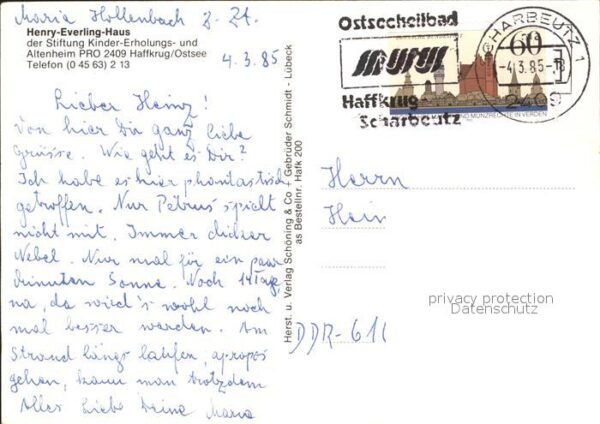 Maria Hollenbach z. Zt.
Henry-Everling-Haus
der Stiftung Kinder-Erholungs- und
Altenheim PRO 2409 Haffkrug/Ostsee
Telefon (0 45 63) 2 13
4.3.85
Lieber Heinz!
Von hier Dir ganz liebe
Grüsse. Wie geht es Dir?
Ich habe es hier phantastisch
getroffen. Nur Petrus spielt
nicht mit. Immer dicker
Nebel. Nur mal für ein paar
Minuten Sonne. Noch 14 Tage,
na, da wird's wohl noch
mal besser werden. Am
Strand längs laufen, apropos
gehen, kann man trotzdem
Alles Liebe Deine Maria
Herst. u. Verlag Schöning & Co + Gebrüder Schmidt - Lübeck
as Bestellnr. Hafk 200
Ostseeheilbad
Haffkrug
Scharbeutz
SCHARBEUTZ 1
-4.3.85-18
2409
60
MÜNZRECHTE IN VERDEN
Herrn
Hein
DDR-61
privacy protection
Datenschutz